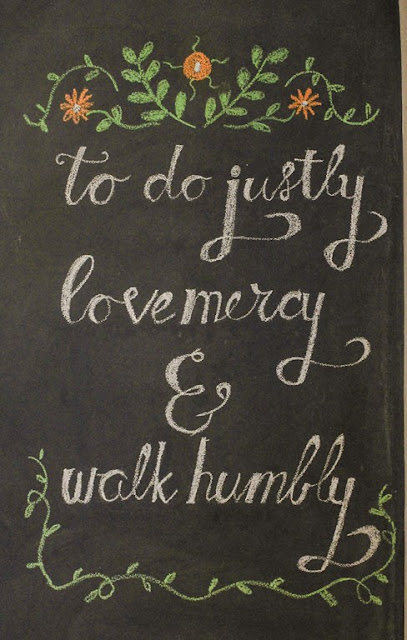 to do justly
love mercy
&
walk humbly